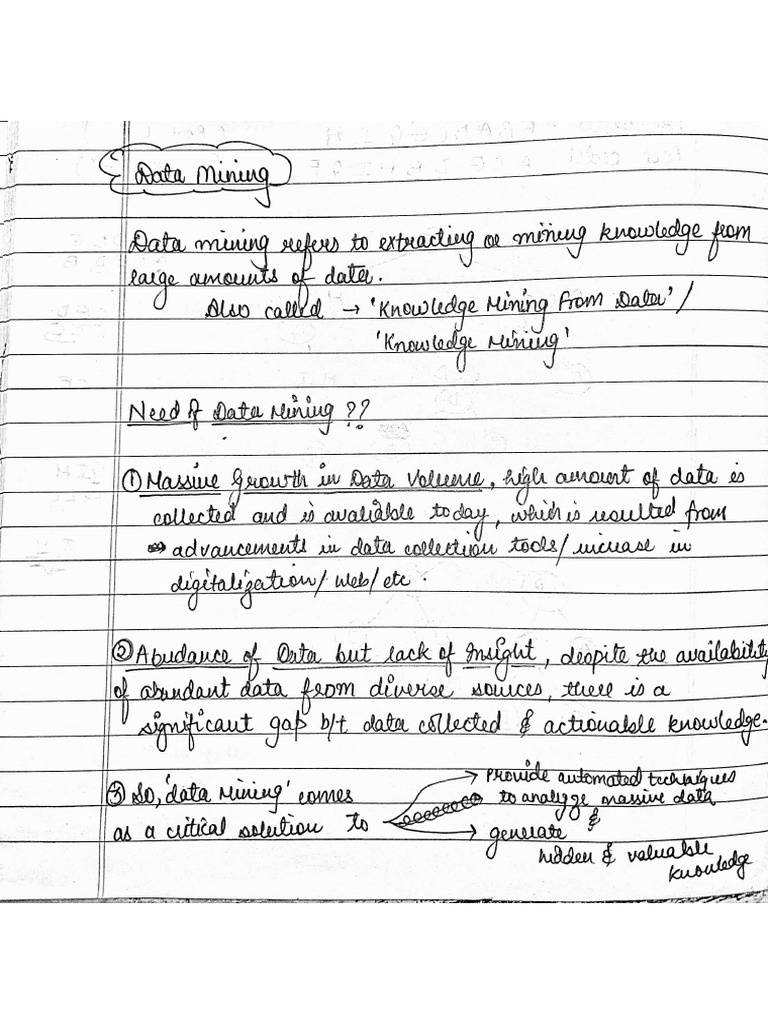 Data Mining
Data mining refers to extracting or mining knowledge from
large amounts of data.
Also called → 'Knowledge Mining From Data' /
'Knowledge Mining'
Need of Data Mining ??
① Massive Growth in Data Volume, high amount of data is
collected and is avaliable today, which is resulted from
advancements in data collection tools/ increase in
digitalization/ web/ etc.
② Abudance of Data but lack of Insight, despite the availability
of abundant data from diverse sources, there is a
significant gap b/t data collected & actionable knowledge.
③ So, 'data Mining' comes
as a critical solution to
→ Provide automated techniques
to analyze massive data
&
→ generate
hidden & valuable
knowledge